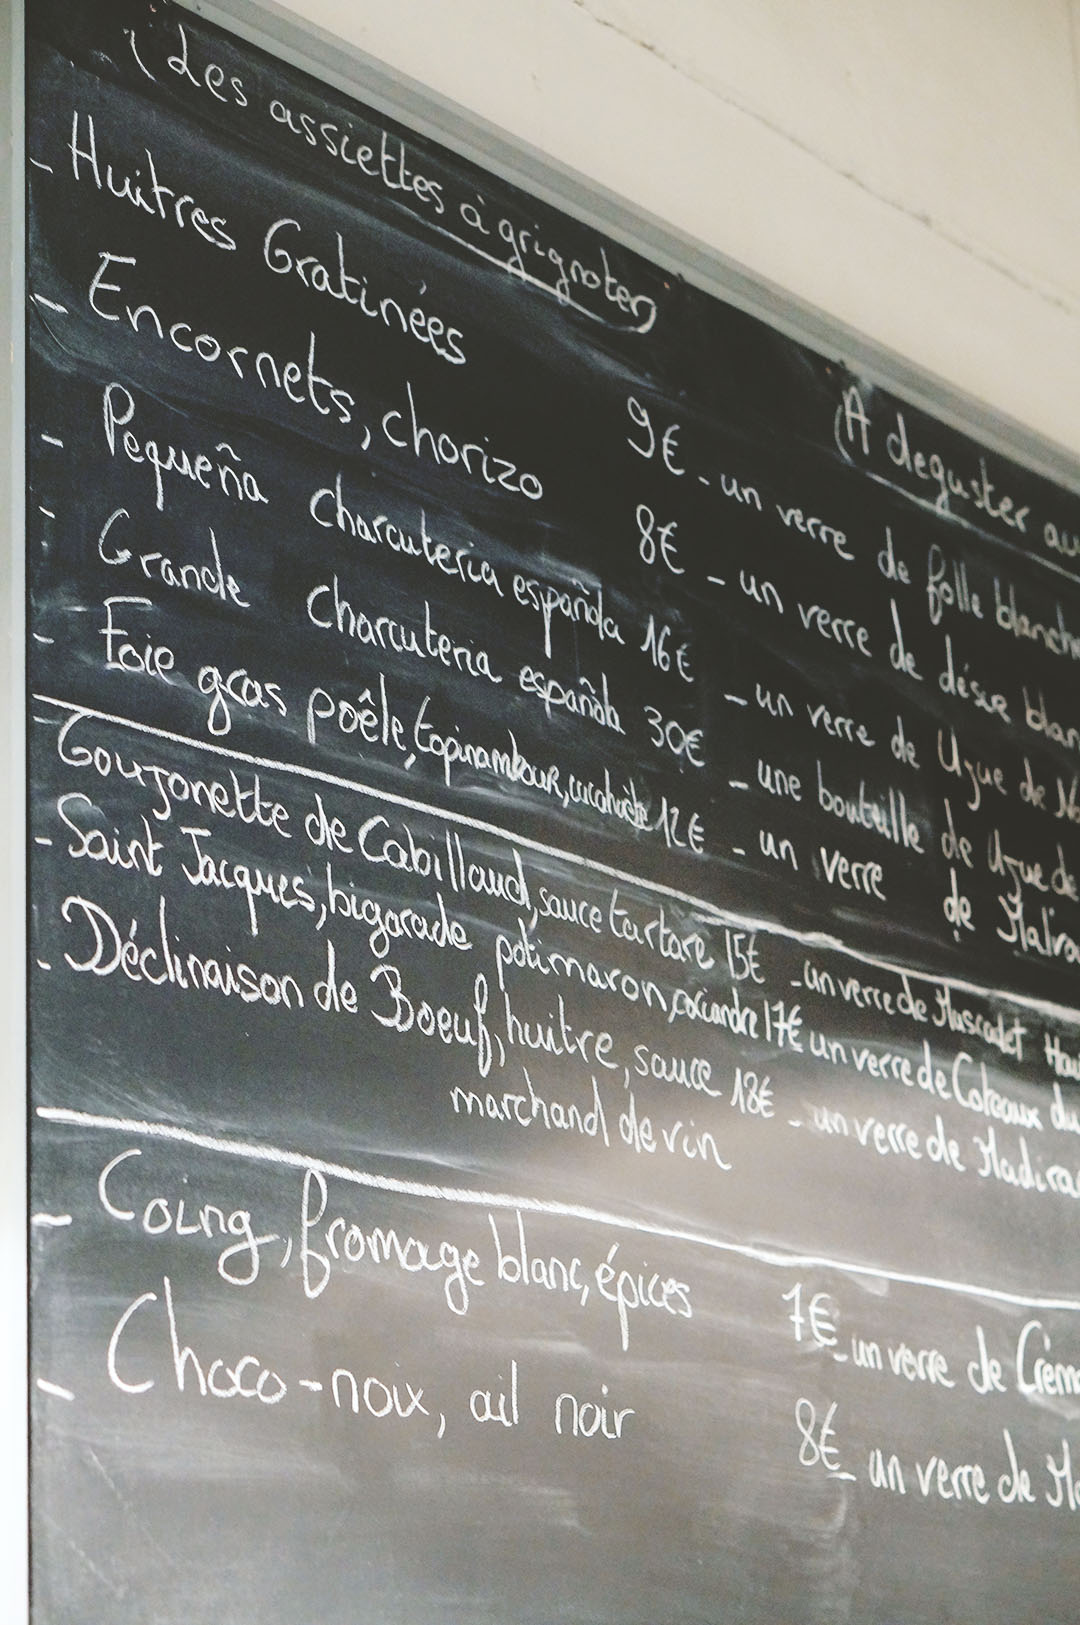 Les assiettes à grignoter
A deguster au
- Huitres Gratinées 9€ - un verre de folle blanche
- Encornets, chorizo 8€ - un verre de désir blan
- Pequeña charcuteria española 16€ - un verre de Ugue de No
- Grande Charcuteria española 30€ - une bouteille de Ugue de
- Foie gras poêle, topinambour, cacahuète 12€ - un verre de Malva
Goujonette de Cabillaud, sauce tartare 15€ - un verre de Muscadet Hau
- Saint Jacques, bigarade potimaron, coriandre 17€ un verre de Coteaux du
- Déclinaison de Boeuf, huitre, sauce 18€ - un verre de Madiran
marchand de vin
- Coing, fromage blanc, épices 7€ - un verre de Crém
- Choco-noix, ail noir 8€ un verre de Ma